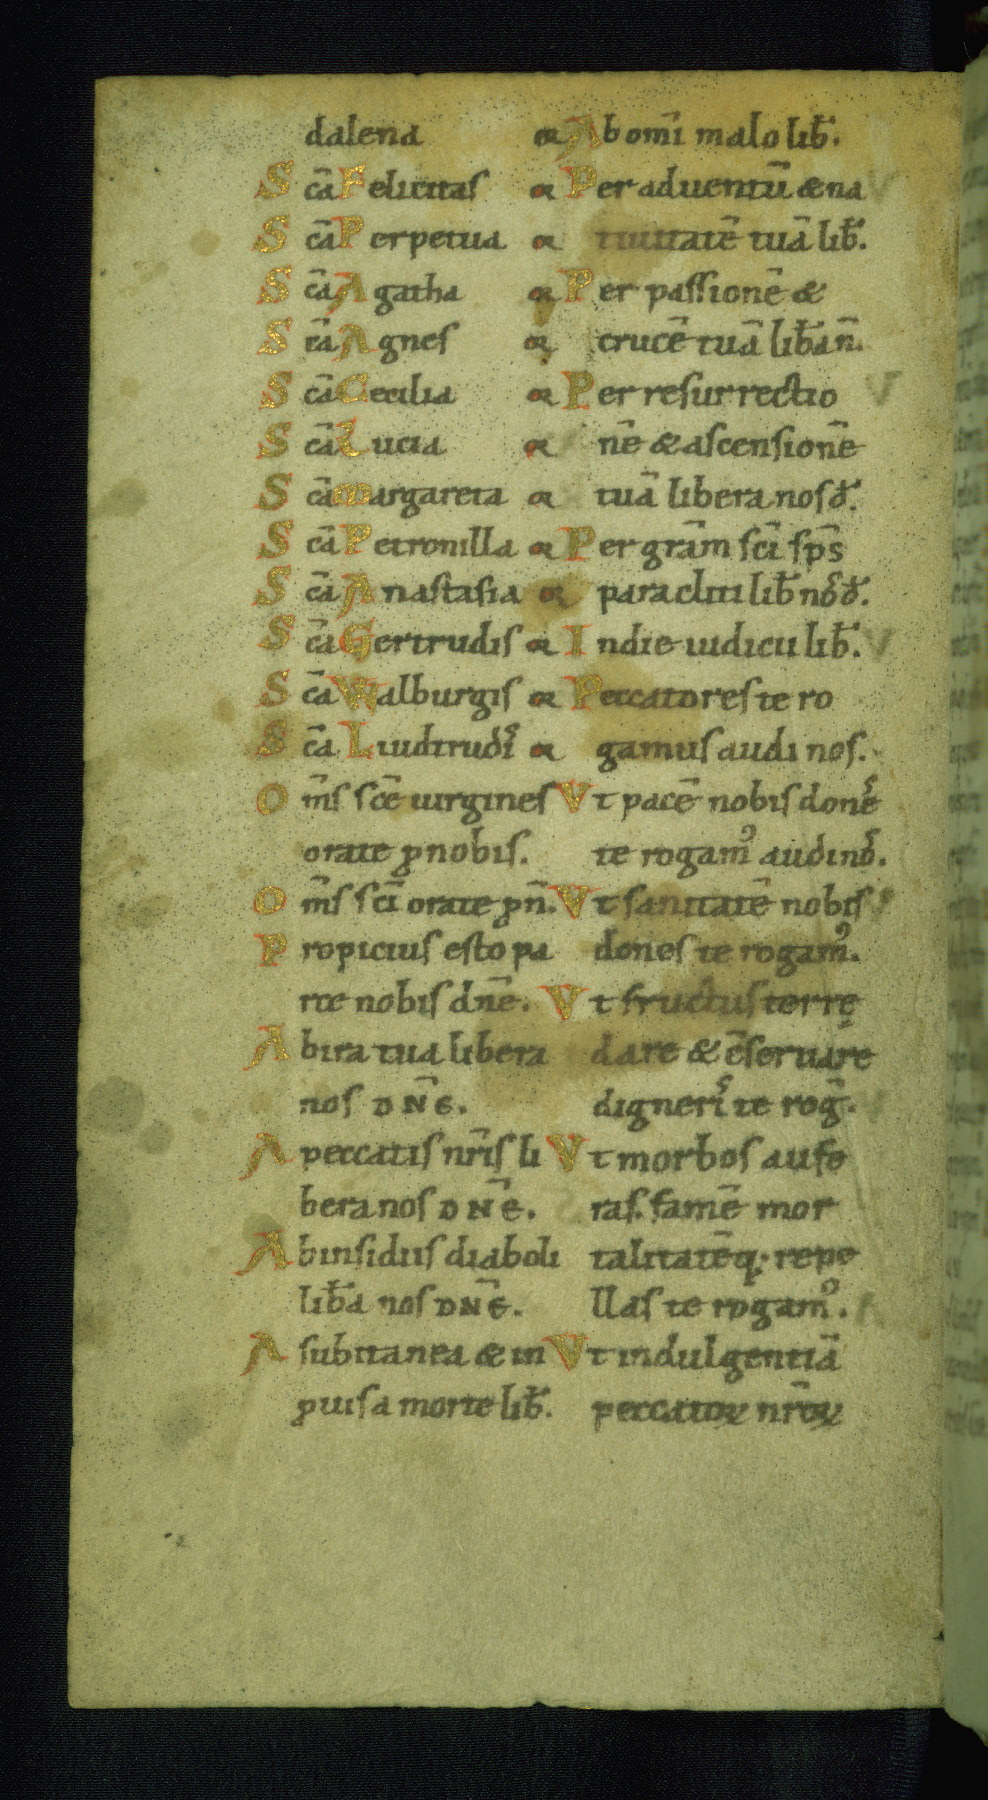 dalena or
Sc̄a Felicitas or
Sc̄a Perpetua or
Sc̄a Agatha or
Sc̄a Agnes or
Sc̄a Cecilia or
Sc̄a Lucia or
Sc̄a Margareta or
Sc̄a Petronilla or
Sc̄a Anastasia or
Sc̄a Gertrudis or
Sc̄a Walburgis or
Sc̄a Liudtrud̄ or
Om̄s sc̄e uirgines
orate ꝓ nobis.
Om̄s sc̄i orate ꝓ n̄.
Propicius esto pa
rce nobis dn̄e.
Ab ira tua libera
nos DN̄E.
A peccatis nr̄is li
bera nos DN̄E.
Ab insidiis diaboli
lib̄a nos DN̄E.
A subitanea & in
ꝓuisa morte lib̄.
Ab om̄i malo lib̄.
Per aduentū & na
tiuitatē tuā lib̄.
Per passionē &
crucē tuā lib̄a n̄.
Per resurrectio
nē & ascensionē
tuā libera nos d̄.
Per gr̄am sc̄i sp̄s
paracliti lib̄ nos d̄.
In die iudicii lib̄.
Peccatores te ro
gamus audi nos.
Vt pacē nobis dones
te rogam᾽ audi nos.
Vt sanitatē nobis
dones te rogam᾽.
Vt fructus terrę
dare & c̄seruare
digneris te roḡ.
Vt morbos aufe
ras. famē mor
talitatēq; repe
llas te rogam᾽.
Vt indulgentiā
peccatoꝝ nr̄oꝝ